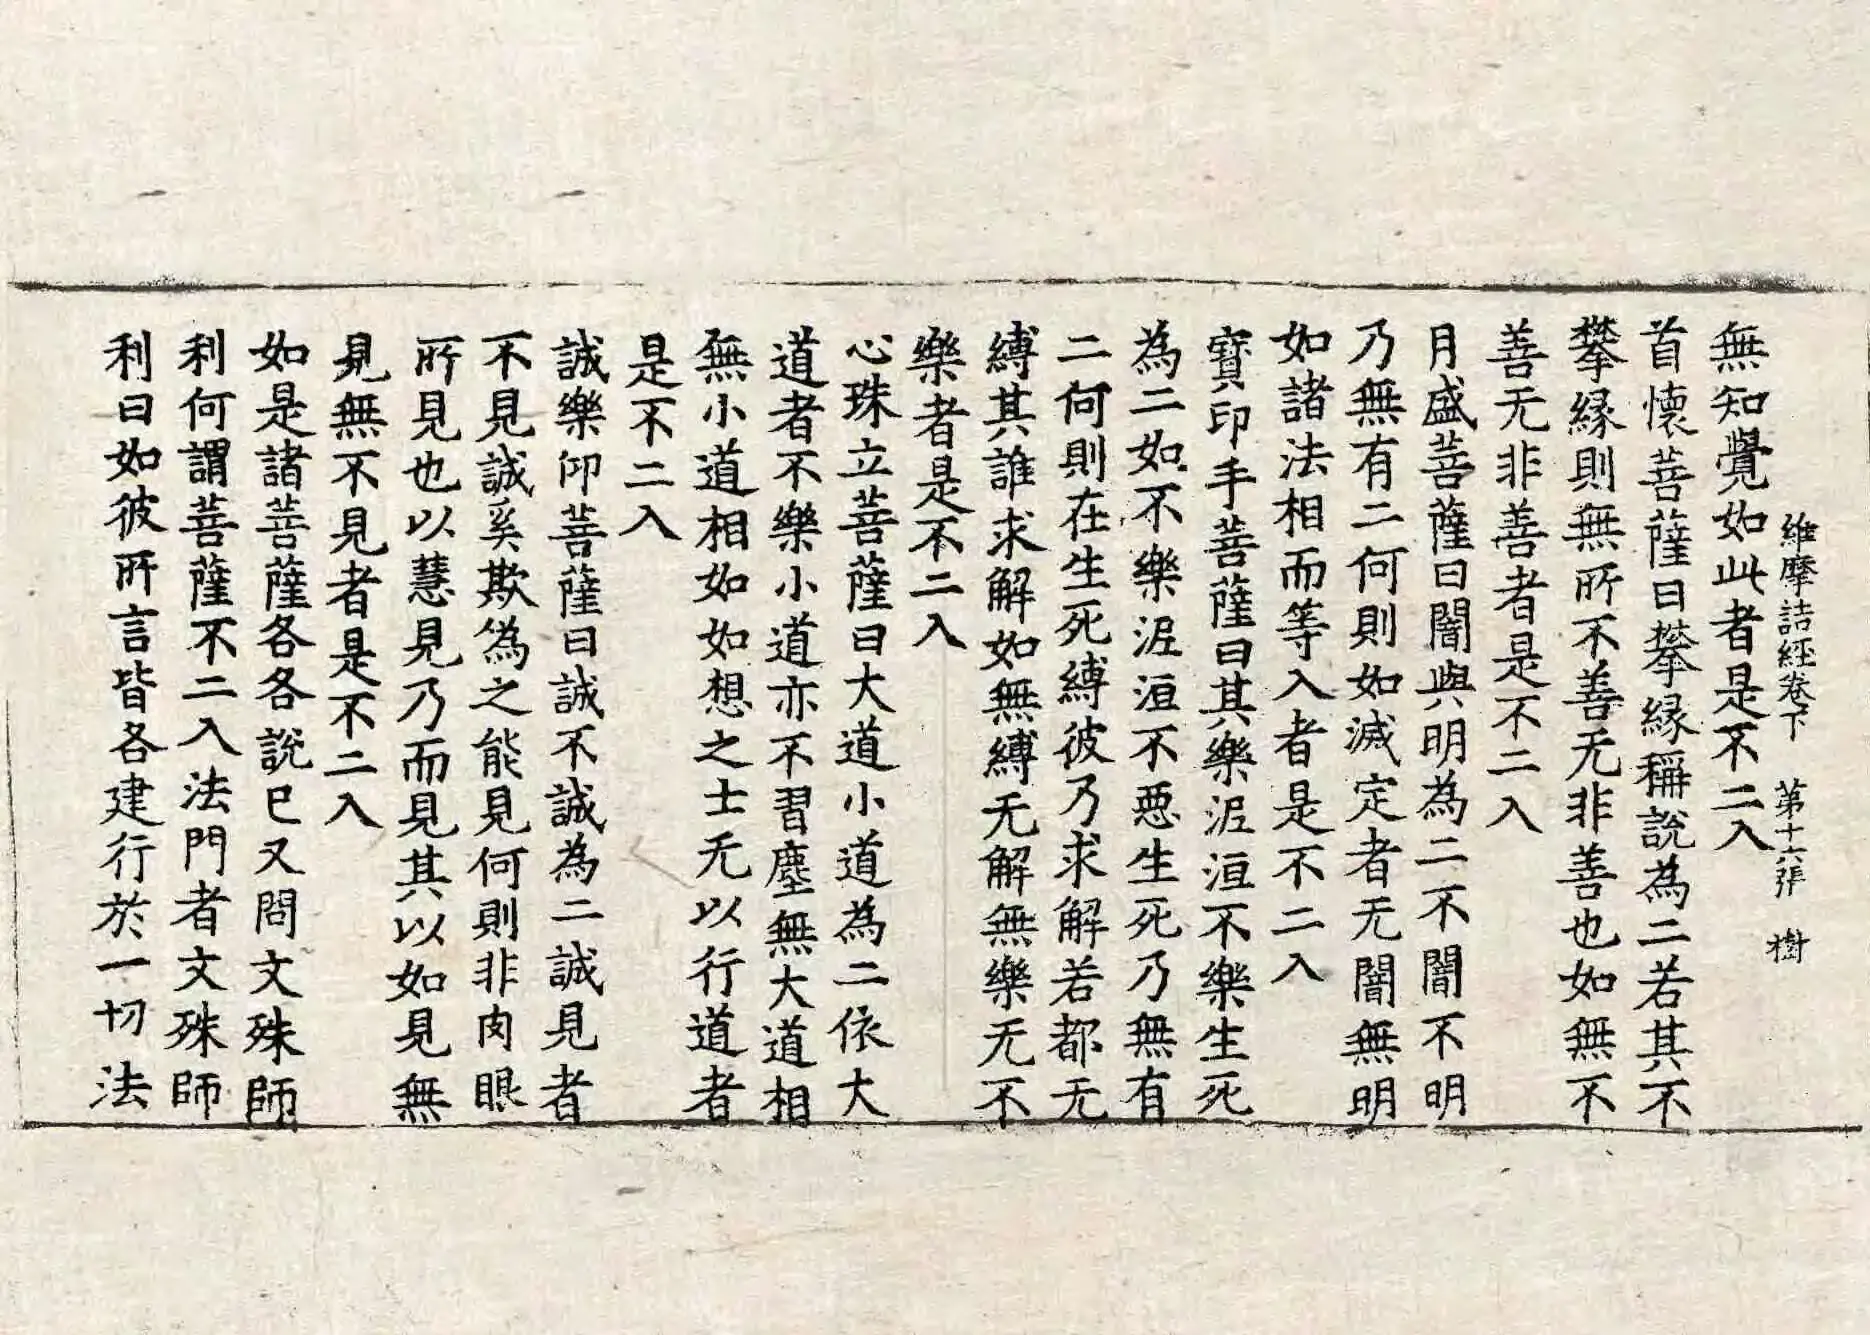 維摩詰經卷下 第十六張 樹
無知覺如此者是不二入
首懷菩薩曰攀緣稱說為二若其不
攀緣則無所不善无非善也如無不
善无非善者是不二入
月盛菩薩曰闇與明為二不闇不明
乃無有二何則如滅定者无闇無明
如諸法相而等入者是不二入
寶印手菩薩曰其樂泥洹不樂生死
為二如不樂泥洹不惡生死乃無有
二何則在生死縛彼乃求解若都无
縛其誰求解如無縛无解無樂无不
樂者是不二入
心珠立菩薩曰大道小道為二依大
道者不樂小道亦不習塵無大道相
無小道相如如想之士无以行道者
是不二入
誠樂仰菩薩曰誠不誠為二誠見者
不見誠奚欺偽之能見何則非肉眼
所見也以慧見乃而見其以如見無
見無不見者是不二入
如是諸菩薩各各說已又問文殊師
利何謂菩薩不二入法門者文殊師
利曰如彼所言皆各建行於一切法